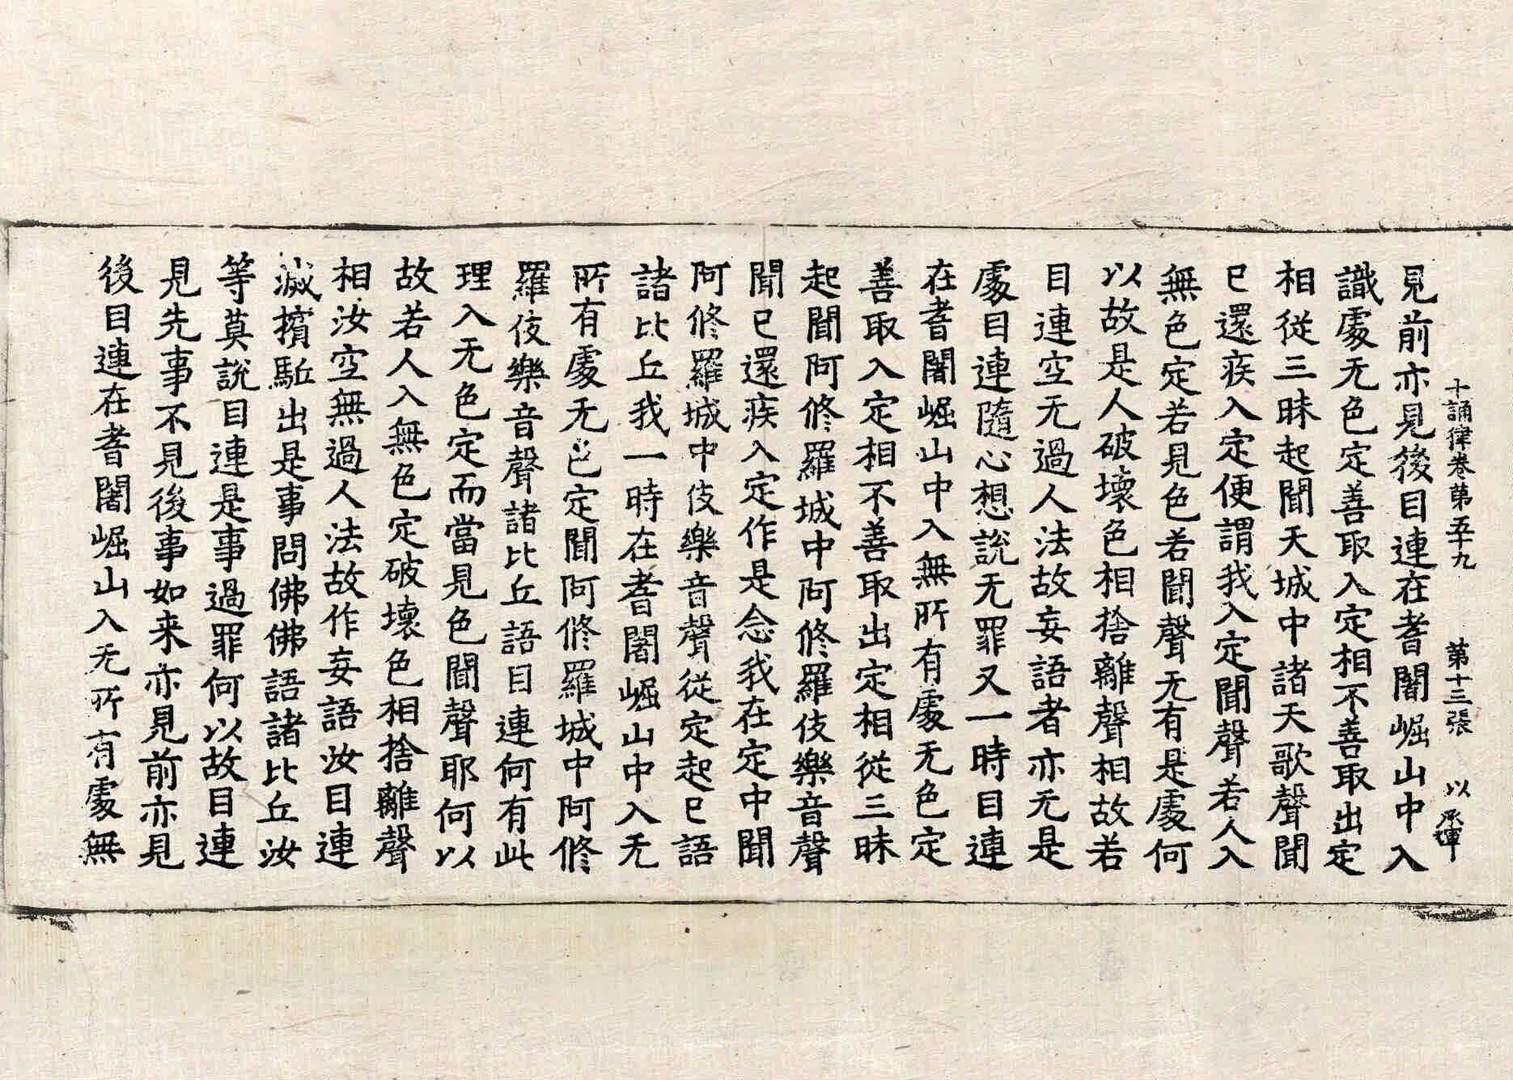 十誦律卷第五十九 第十三張 以
見前亦見後目連在耆闍崛山中入
識處无色定善取入定相不善取出定
相從三昧起聞天城中諸天歌聲聞
已還疾入定便謂我入定聞聲若人入
無色定若見色若聞聲无有是處何
以故是人破壞色相捨離聲相故若
目連空无過人法故妄語者亦无是
處目連隨心想說无罪又一時目連
在耆闍崛山中入無所有處无色定
善取入定相不善取出定相從三昧
起聞阿修羅城中阿修羅伎樂音聲
聞已還疾入定作是念我在定中聞
阿修羅城中伎樂音聲從定起已語
諸比丘我一時在耆闍崛山中入无
所有處无色定聞阿修羅城中阿修
羅伎樂音聲諸比丘語目連何有此
理入无色定而當見色聞聲耶何以
故若人入無色定破壞色相捨離聲
相汝空無過人法故作妄語汝目連
滅擯駈出是事問佛佛語諸比丘汝
等莫說目連是事過罪何以故目連
見先事不見後事如来亦見前亦見
後目連在耆闍崛山入无所有處無